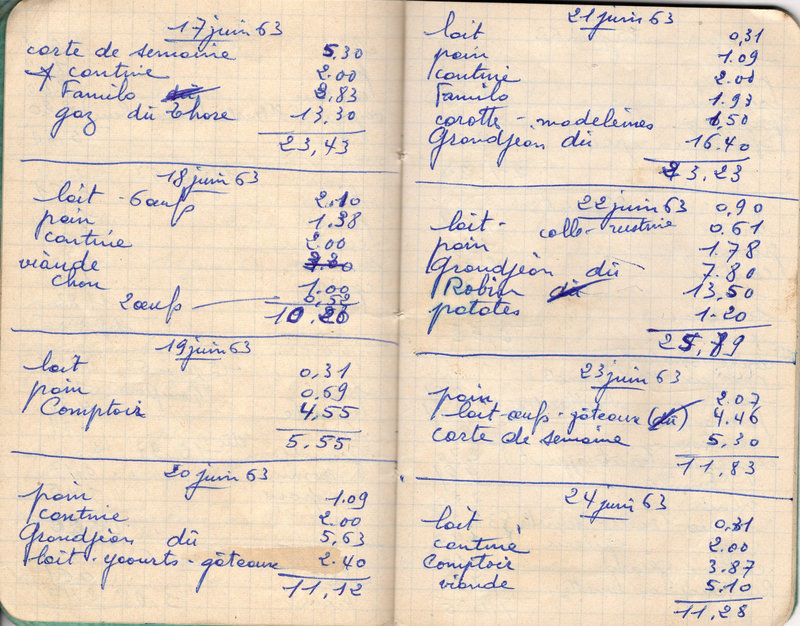 17 juin 63
carte de semaine 5,30
cantine 2.00
Familo dû 2,83
gaz dû Thore 13,30
23,43
18 juin 63
lait - 6 œufs 2.10
pain 1.38
cantine 2.00
viande
chou 1.00
2 œufs
10,26
19 juin 63
lait 0,31
pain 0,69
Comptoir 4,55
5,55
20 juin 63
pain 1.09
cantine 2.00
Grandjean dû 5,63
lait - yaourts - gâteaux 2.40
11,12
21 juin 63
lait 0,31
pain 1.09
cantine 2.00
Familo 1.93
carotte - madeleines 1,50
Grandjean dû 16.40
23,23
22 juin 63
lait - 0,90
colle - rustine 0.61
pain 1.78
Grandjean dû 7.80
Robin dû 13,50
patates 1.20
25,79
23 juin 63
pain 2.07
lait - œufs - gâteaux (dû) 4.46
carte de semaine 5,30
11,83
24 juin 63
lait 0,31
cantine 2.00
Comptoir 3.87
viande 5.10
11,28